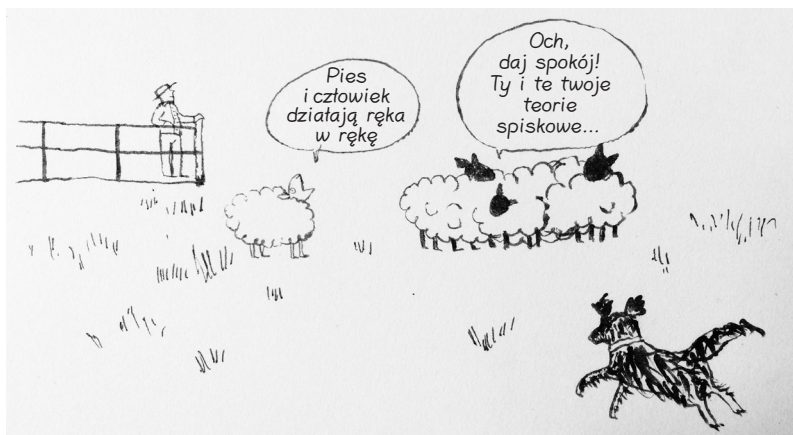 Pies
i człowiek
działają ręka
w rękę
Och,
daj spokój!
Ty i te twoje
teorie
spiskowe...